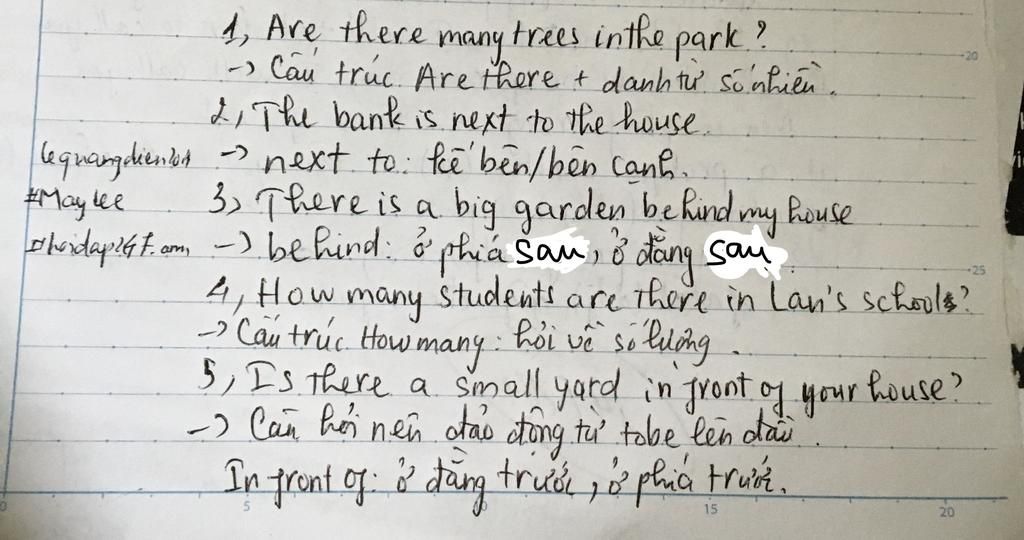 1, Are there many trees in the park?
-> Cấu trúc Are there + danh từ số nhiều.
2, The bank is next to the house.
lequangdien201 -> next to: kế bên/bên cạnh.
#May Lee 3, There is a big garden behind my house
-> behind: ở phía sau, ở đằng sau.
4, How many students are there in Lan's school?
-> Cấu trúc How many: hỏi về số lượng.
5, Is there a small yard in front of your house?
-> Câu hỏi nên đảo động từ tobe lên đầu.
In front of: ở đằng trước, ở phía trước.
20
25
5
15
20